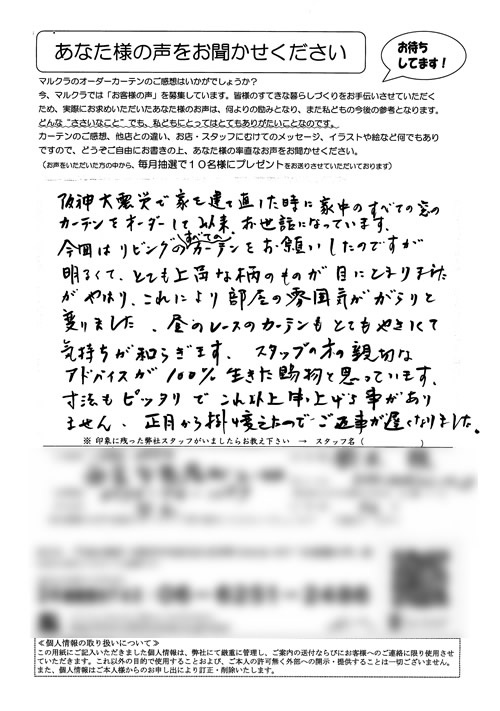 あなた様の声をお聞かせください
お待ち
してます！
マルクラのオーダーカーテンのご感想はいかがでしょうか？
今、マルクラでは「お客様の声」を募集しています。皆様のすてきな暮らしづくりをお手伝いさせていただく
ため、実際にお求めいただいたあなた様のお声は、何よりの励みとなり、また私どもの今後の参考となります。
どんな“ささいなこと”でも、私どもにとってはとてもありがたいことなのです。
カーテンのご感想、他店との違い、お店・スタッフにむけてのメッセージ、イラストや絵など何でもあり
ですので、どうぞご自由にお書きの上、あなた様の率直なお声をお聞かせください。
（お声をいただいた方の中から、毎月抽選で１０名様にプレゼントをお送りさせていただいております）
阪神大震災で家を建て直した時に家中のすべての窓の
カーテンをオーダーして以来、お世話になっています、
今回はリビングのすべてのカーテンをお願いしたのですが
明るくて、とても上品な柄のものが目にとまりました
がやはり、これにより部屋の雰囲気ががらりと
変りました、昼のレースのカーテンもとてもやさしくて
気持ちが和らぎます、スタッフの方の親切な
アドバイスが100％生きた賜物と思っています、
寸法もピッタリでこれ以上申し上げる事があり
ません、正月から掛け変えたのでご返事が遅くなりました。
※ 印象に残った弊社スタッフがいましたらお教え下さい → スタッフ名（ ）
06-6251-2486
≪個人情報の取り扱いについて≫
この用紙にご記入いただきました個人情報は、弊社にて厳重に管理し、ご案内の送付ならびにお客様へのご連絡に限り使用させ
ていただきます。これ以外の目的で使用することおよび、ご本人の許可無く外部への開示・提供することは一切ございません。
また、個人情報はご本人様からのお申し出により訂正・削除いたします。